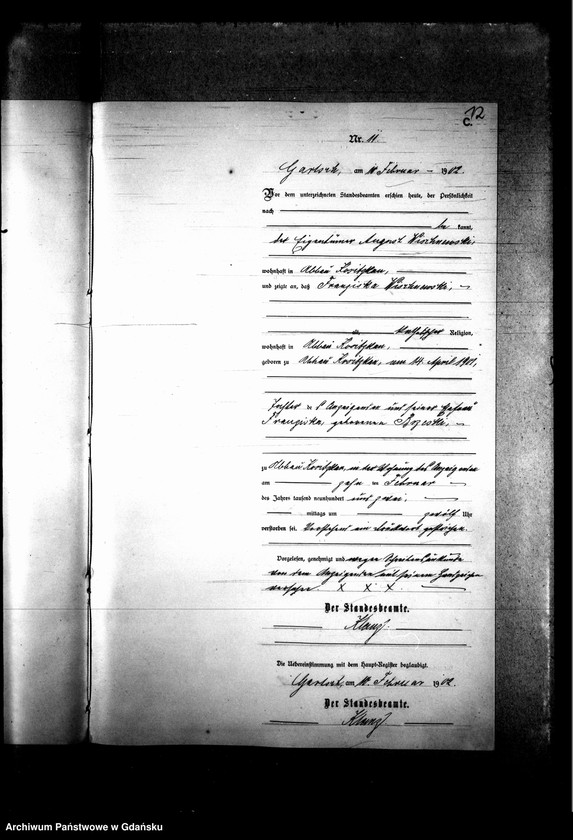 C. 12
Nr. 11
Gartsch, am 11. Februar 1902.
Vor dem unterzeichneten Standesbeamten erschien heute, der Persönlichkeit
nach
be kannt,
der Eigentümer August Wischnewski,
wohnhaft in Abbau Koritzkau,
und zeigte an, daß Franziska Wischnewski,
katholischer Religion,
wohnhaft in Abbau Koritzkau,
geboren zu Abbau Koritzkau, am 14. April 1901,
Tochter des Anzeigenden und seiner Ehefrau
Franziska, geborenen
zu Abbau Koritzkau, in der Wohnung des Anzeigenden
am zehn ten Februar
des Jahres tausend neunhundert und zwei,
mittags um zwölf Uhr
verstorben sei. Vorstehend ein Druckwort gestrichen.
Vorgelesen, genehmigt und wegen Schreibensunkunde
von dem Anzeigenden mit seinem Handzeichen
versehen. X X X.
Der Standesbeamte.
Die Uebereinstimmung mit dem Haupt-Register beglaubigt.
Gartsch, am 11. Februar 1902.
Der Standesbeamte.
Archiwum Państwowe w Gdańsku